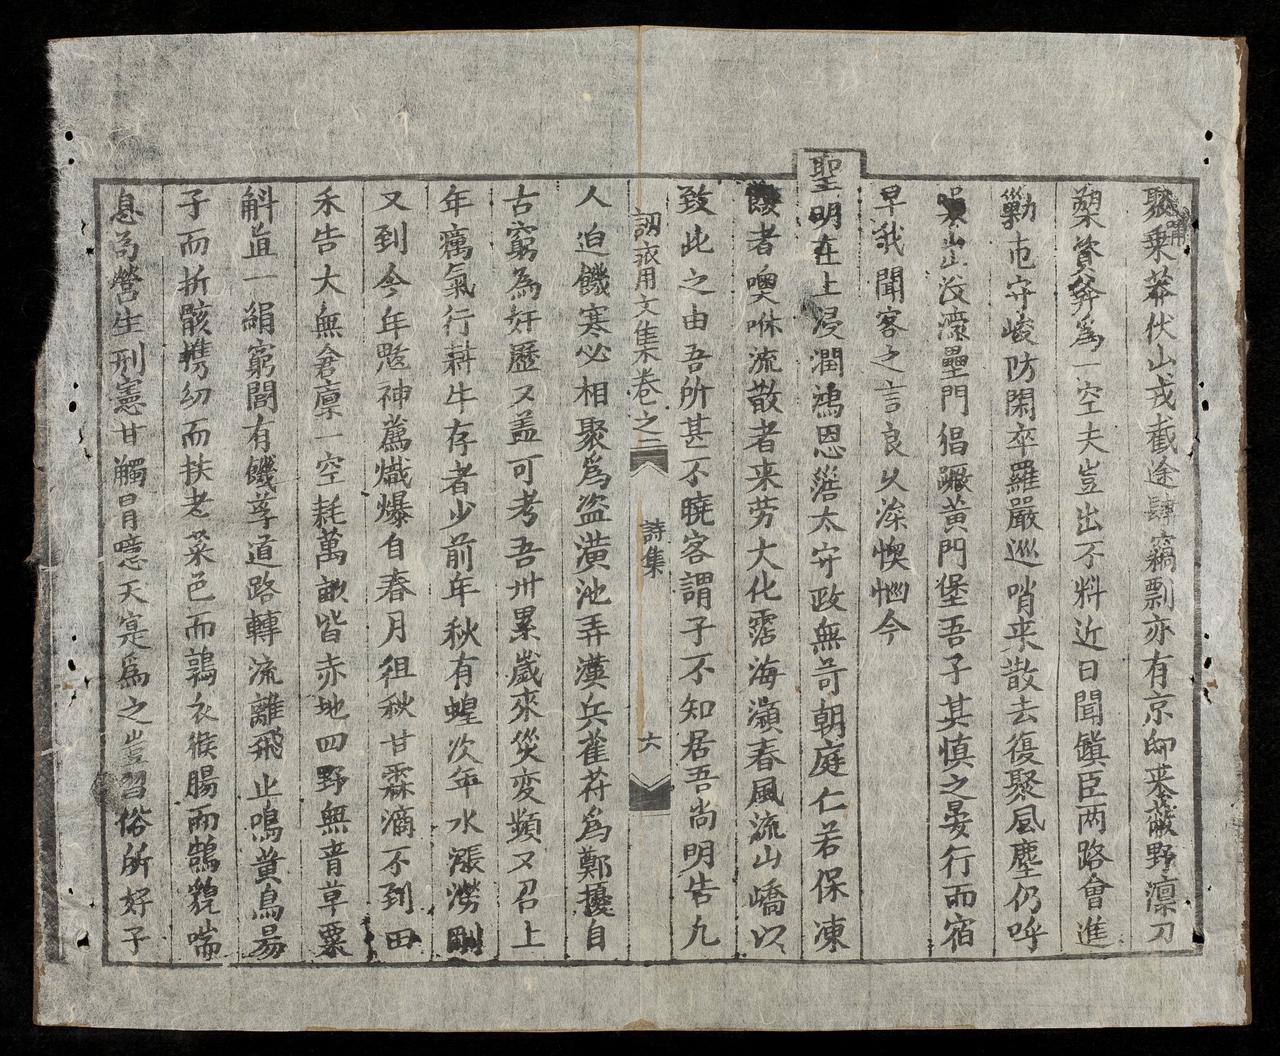 聚乗莽伏山戎截途肆竊剽亦有京師来蔽野凛刀
槊資粮爲一空夫豈出不料近日聞鎭臣两路會進
勦屯守峻防閑卒羅嚴巡哨来散去復聚風塵仍呼
出没濠壘門猖蹶黄門堡吾子其慎之晏行而宿
早我聞客之言良久深懊惱今
聖明在上浸潤鴻恩湛太守政無苛朝庭仁若保凍
餒者噢咻流散者来劳大化霑海灝春風流山嶠以
致此之由吾所甚不曉客謂子不知居吾尚明告九
訒衣用文集卷之二 詩集 六
人迫饑寒必相聚爲盗潢池弄漢兵萑苻爲鄭擾自
古窮為奸歷又盖可考吾州累歲來災变頻又召上
年癘氣行耕牛存者少前年秋有蝗次年水漲澇
又到今年愍神薦熾爆自春月徂秋甘霖滴不到田
禾告大無倉廩一空耗萬畝皆赤地四野無青草粟
斛直一絹窮閭有饑莩道路轉流離飛止鳴黄鳥易
子而折骸携幼而扶老菜色而鶉衣猴腸而鵠貌喘
息為營生刑憲甘觸冒噫天寔爲之豈習俗所好子